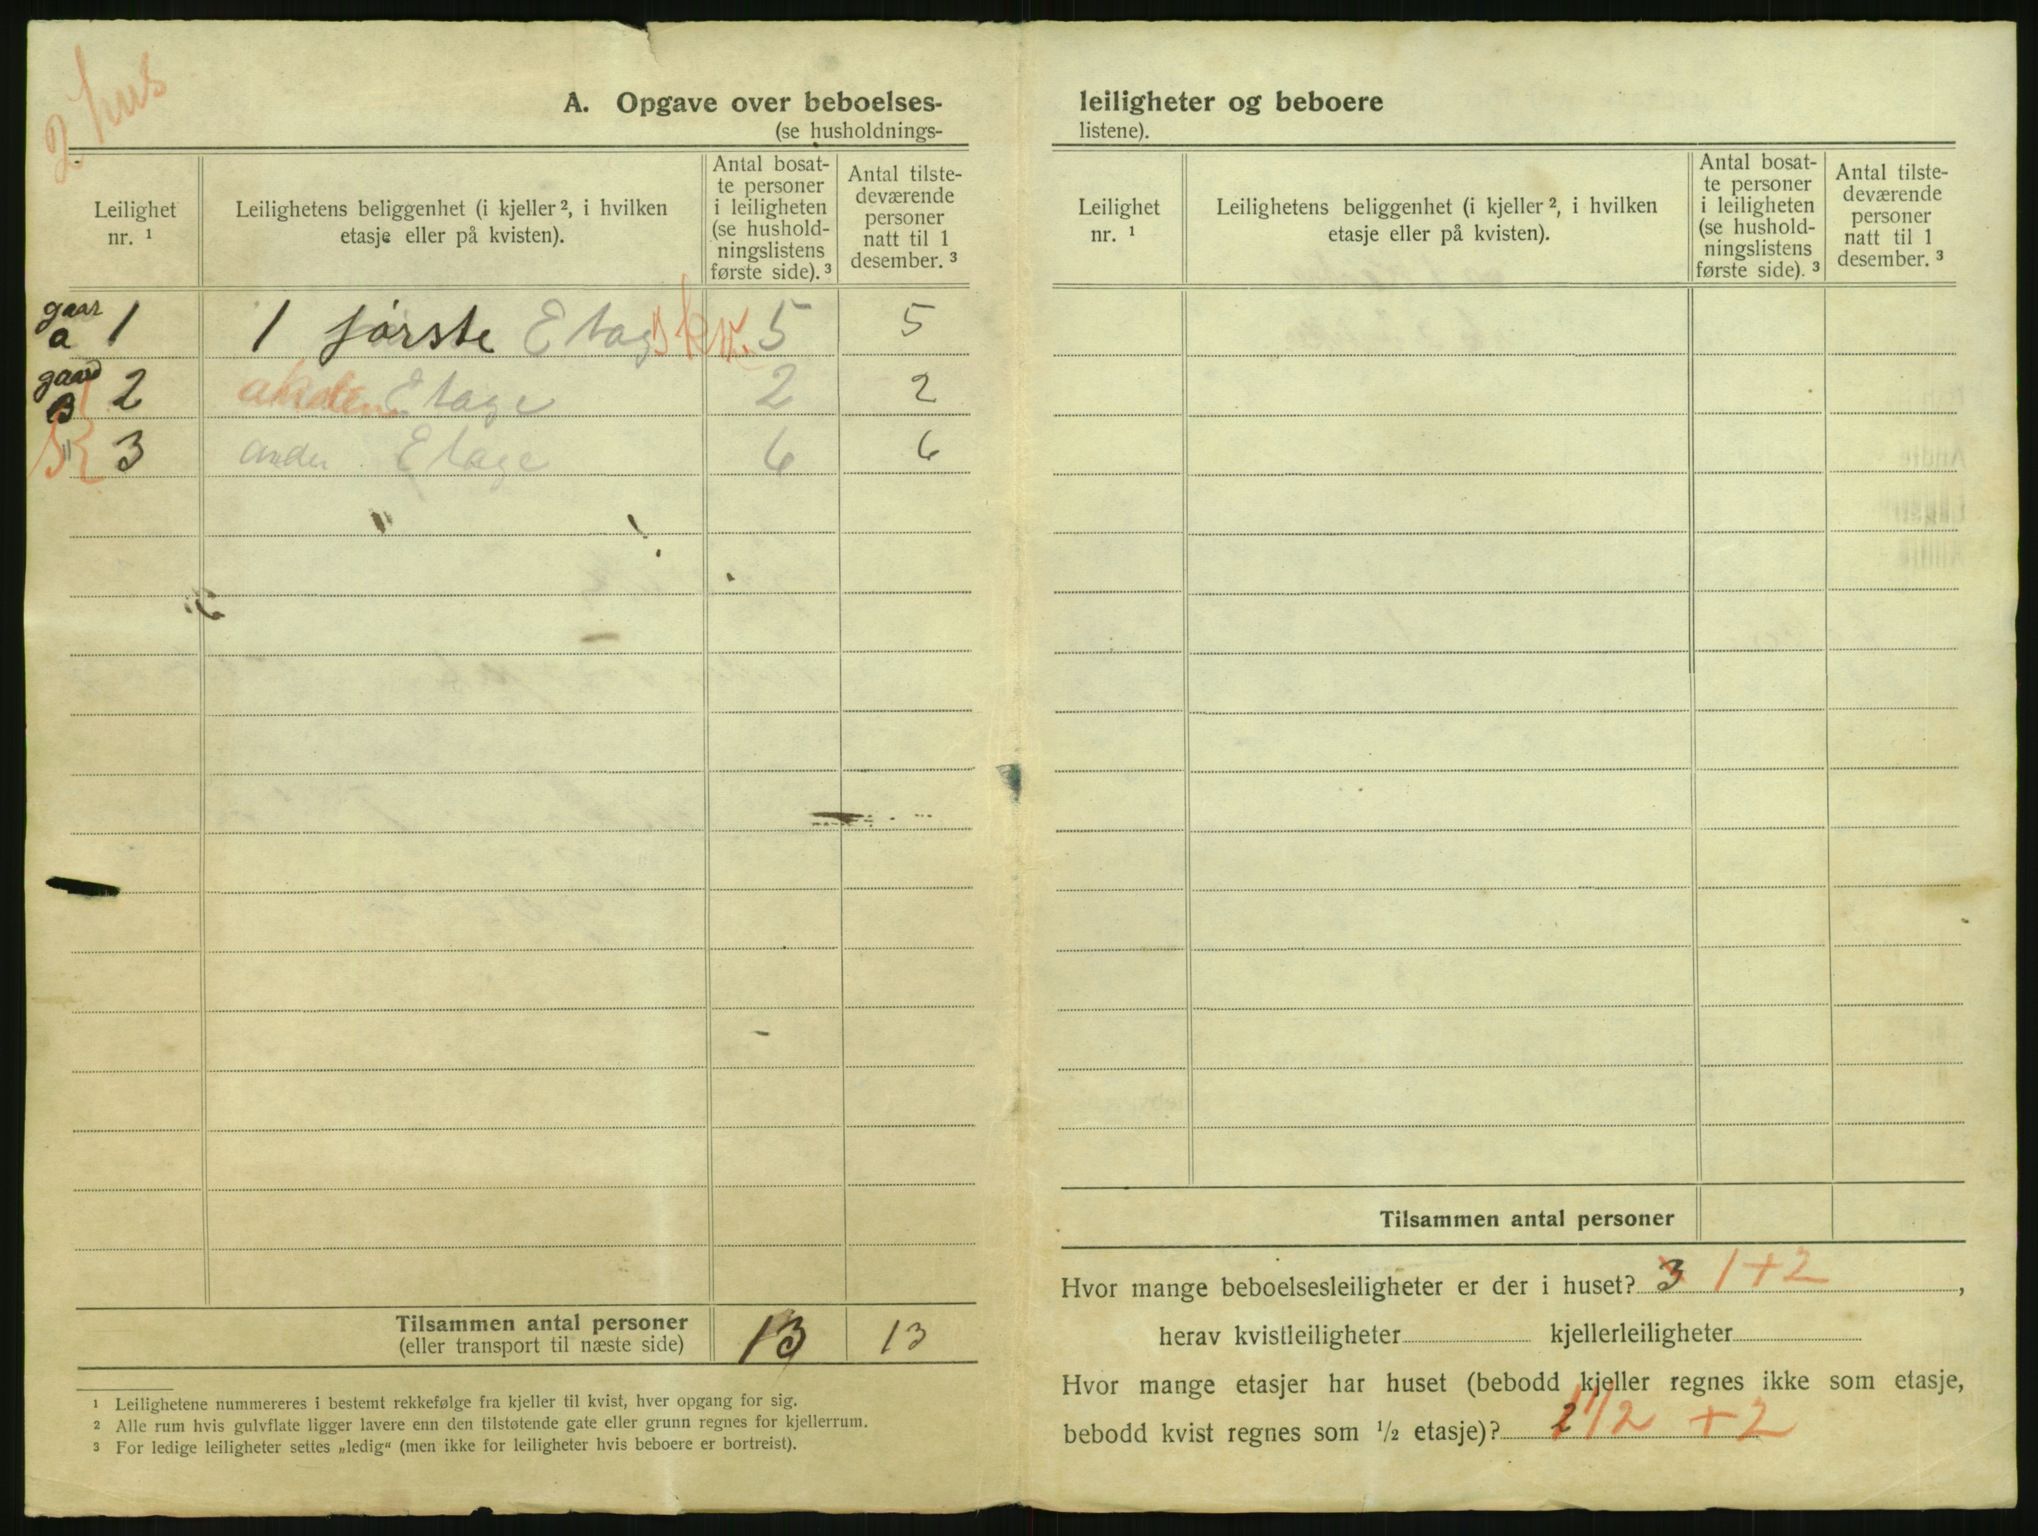 2 hus
A. Opgave over beboelses-
(se husholdnings-
Leilighet
nr. 1
Leilighetens beliggenhet (i kjeller 2, i hvilken
etasje eller på kvisten).
Antal bosat-
te personer
i leiligheten
(se hushold-
ningslistens
første side). 3
Antal tilste-
deværende
personer
natt til 1
desember. 3
gaar a 1 1 første Etag skv. 5 5
gaard B 2 Etage 2 2
" 3 ander Etage 6 6
Tilsammen antal personer 13 13
(eller transport til næste side)
1 Leilighetene nummereres i bestemt rekkefølge fra kjeller til kvist, hver opgang for sig.
2 Alle rum hvis gulvflate ligger lavere enn den tilstøtende gate eller grunn regnes for kjellerrum.
3 For ledige leiligheter settes „ledig“ (men ikke for leiligheter hvis beboere er bortreist).
leiligheter og beboere
listene).
Leilighet
nr. 1
Leilighetens beliggenhet (i kjeller 2, i hvilken
etasje eller på kvisten).
Antal bosat-
te personer
i leiligheten
(se hushold-
ningslistens
første side). 3
Antal tilste-
deværende
personer
natt til 1
desember. 3
Tilsammen antal personer
Hvor mange beboelsesleiligheter er der i huset? 3 1+2,
herav kvistleiligheter kjellerleiligheter
Hvor mange etasjer har huset (bebodd kjeller regnes ikke som etasje,
bebodd kvist regnes som 1/2 etasje)? 2 1 1/2 +2